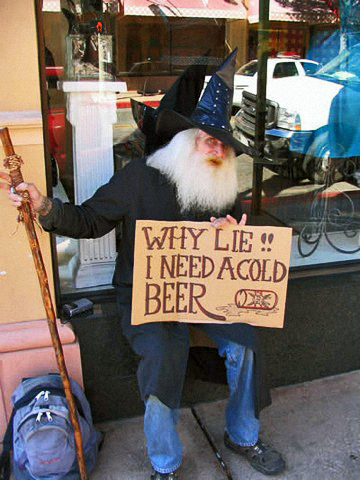 WHY LIE !!
I NEED A COLD
BEER